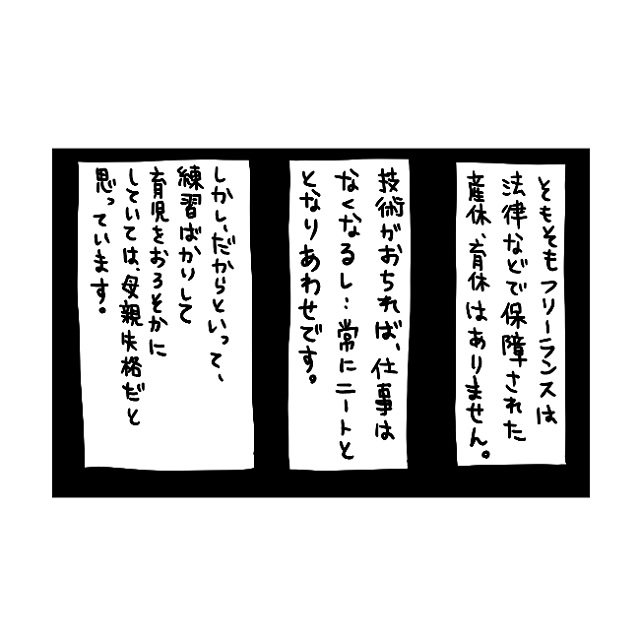 そもそもフリーランスは
法律などで保障された
産休、育休はありません。
技術がおちれば、仕事は
なくなるし…常にニートと
となりあわせです。
しかし、だからといって、
練習ばかりして
育児をおろそかに
していては、母親失格だと
思っています。